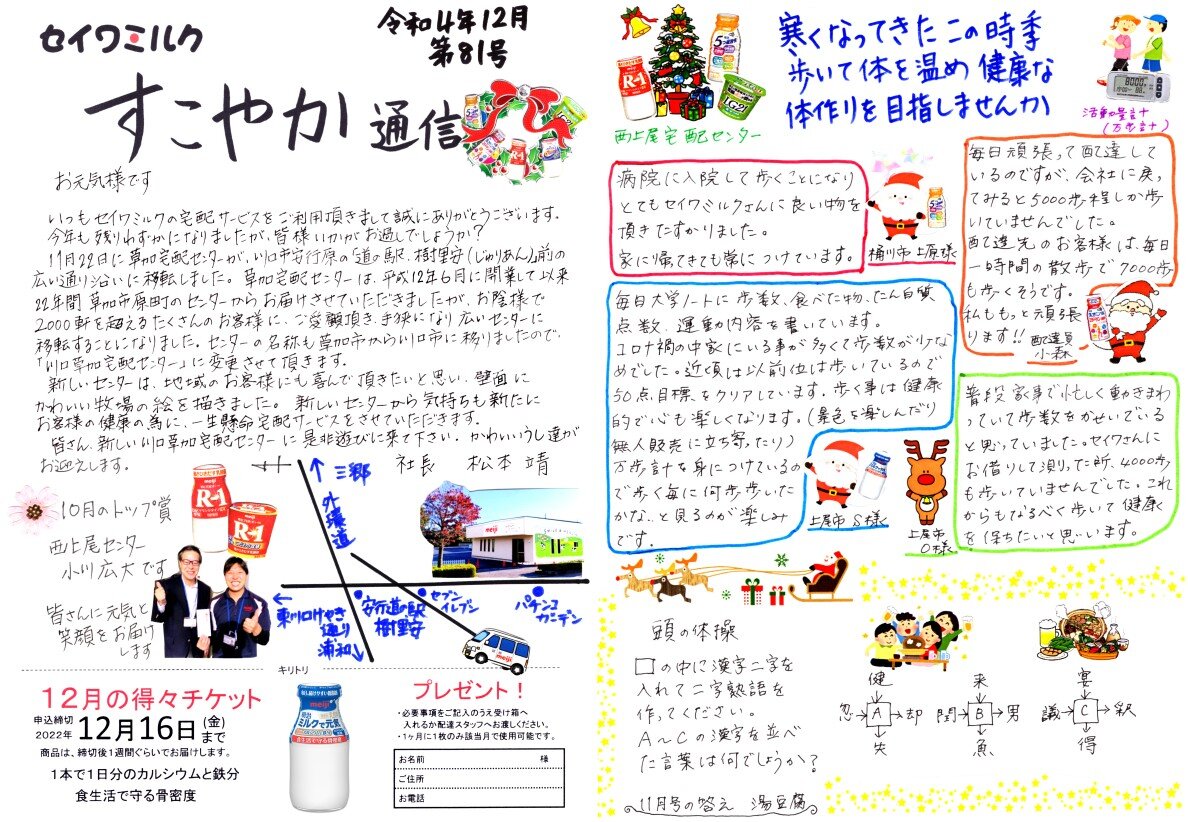 セイワミルク
令和4年12月
第81号
すこやか通信
お元気様です
いつもセイワミルクの宅配サービスをご利用頂きまして誠にありがとうございます。
今年も残りわずかになりましたが、皆様いかがお過しでしょうか?
11月22日に草加宅配センターが、川口市安行原の「道の駅、樹里安(じゅりあん)」前の
広い通り沿いに移転しました。草加宅配センターは、平成12年6月に開業して以来
22年間草加市原町のセンターからお届けさせていただきましたが、お陰様で
2000軒を超えるたくさんのお客様に、ご愛顧頂き、手狭になり広いセンターに
移転することになりました。センターの名称も草加市から川口市に移りましたので、
「川口草加宅配センター」に変更させて頂きます。
新しいセンターは、地域のお客様にも喜んで頂きたいと思い、壁面に
かわいい牧場の絵を描きました。新しいセンターから気持ちも新たに
お客様の健康の為に、一生懸命宅配サービスをさせていただきます。
皆さん、新しい川口草加宅配センターに是非遊びに来て下さい。かわいいうし達が
お迎えします。
社長 松本 靖
10月のトップ賞
西上尾センター
小川広大です
皆さんに元気と
笑顔をお届け
します
R-1
R-1
三郷
外環道
meiji
東川口けやき通り
浦和
安行道の駅
樹里安
セブン
イレブン
パチンコ
ガーデン
meiji
キリトリ
12月の得々チケット
申込締切
2022年 12月16日(金)まで
商品は、締切後1週間ぐらいでお届けします。
1本で1日分のカルシウムと鉄分
食生活で守る骨密度
meiji
ミルクで元気
プレゼント!
・必要事項をご記入のうえ受け箱へ
入れるか配達スタッフへお渡しください。
・1ヶ月に1枚のみ該当月で使用可能です。
お名前 様
ご住所
お電話
R-1
LG21
西上尾宅配センター
寒くなってきたこの時季
歩いて体を温め健康な
体作りを目指しませんか
8000
活動量計
(万歩計)
病院に入院して歩くことになり
とてもセイワミルクさんに良い物を
頂きたすかりました。
家に帰ってきても常につけています。
桶川市上原様
毎日頑張って配達して
いるのですが、会社に戻っ
てみると5000歩程しか歩
いていませんでした。
配達先のお客様は、毎日
一時間の散歩で7000歩
も歩くそうです。
私ももっと頑張
ります!!
配達員
小森
毎日大学ノートに歩数、食べた物、たん白質
点数、運動内容を書いています。
コロナ禍の中家にいる事が多くて歩数が少な
めでした。近頃は以前位は歩いているので
50点目標をクリアしています。歩く事は健康
的で心も楽しくなります。(景色を楽しんだり
無人販売に立ち寄ったり)
万歩計を身につけているの
で歩く毎に何歩歩いた
かな、と見るのが楽しみ
です。
上尾市 S様
普段家事で忙しく動きまわ
っていて歩数をかせいでいる
と思っていました。セイワさんに
お借りして測った所、4000歩
も歩いていませんでした。これ
からもなるべく歩いて健康
を保ちたいと思います。
上尾市
O様
頭の体操
□の中に漢字一字を
入れて二字熟語を
作ってください。
A~Cの漢字を並べ
た言葉は何でしょうか?
11月号の答え 湯豆腐
健
忍 A 却
失
来
関 B 男
魚
宴
議 C 釈
得